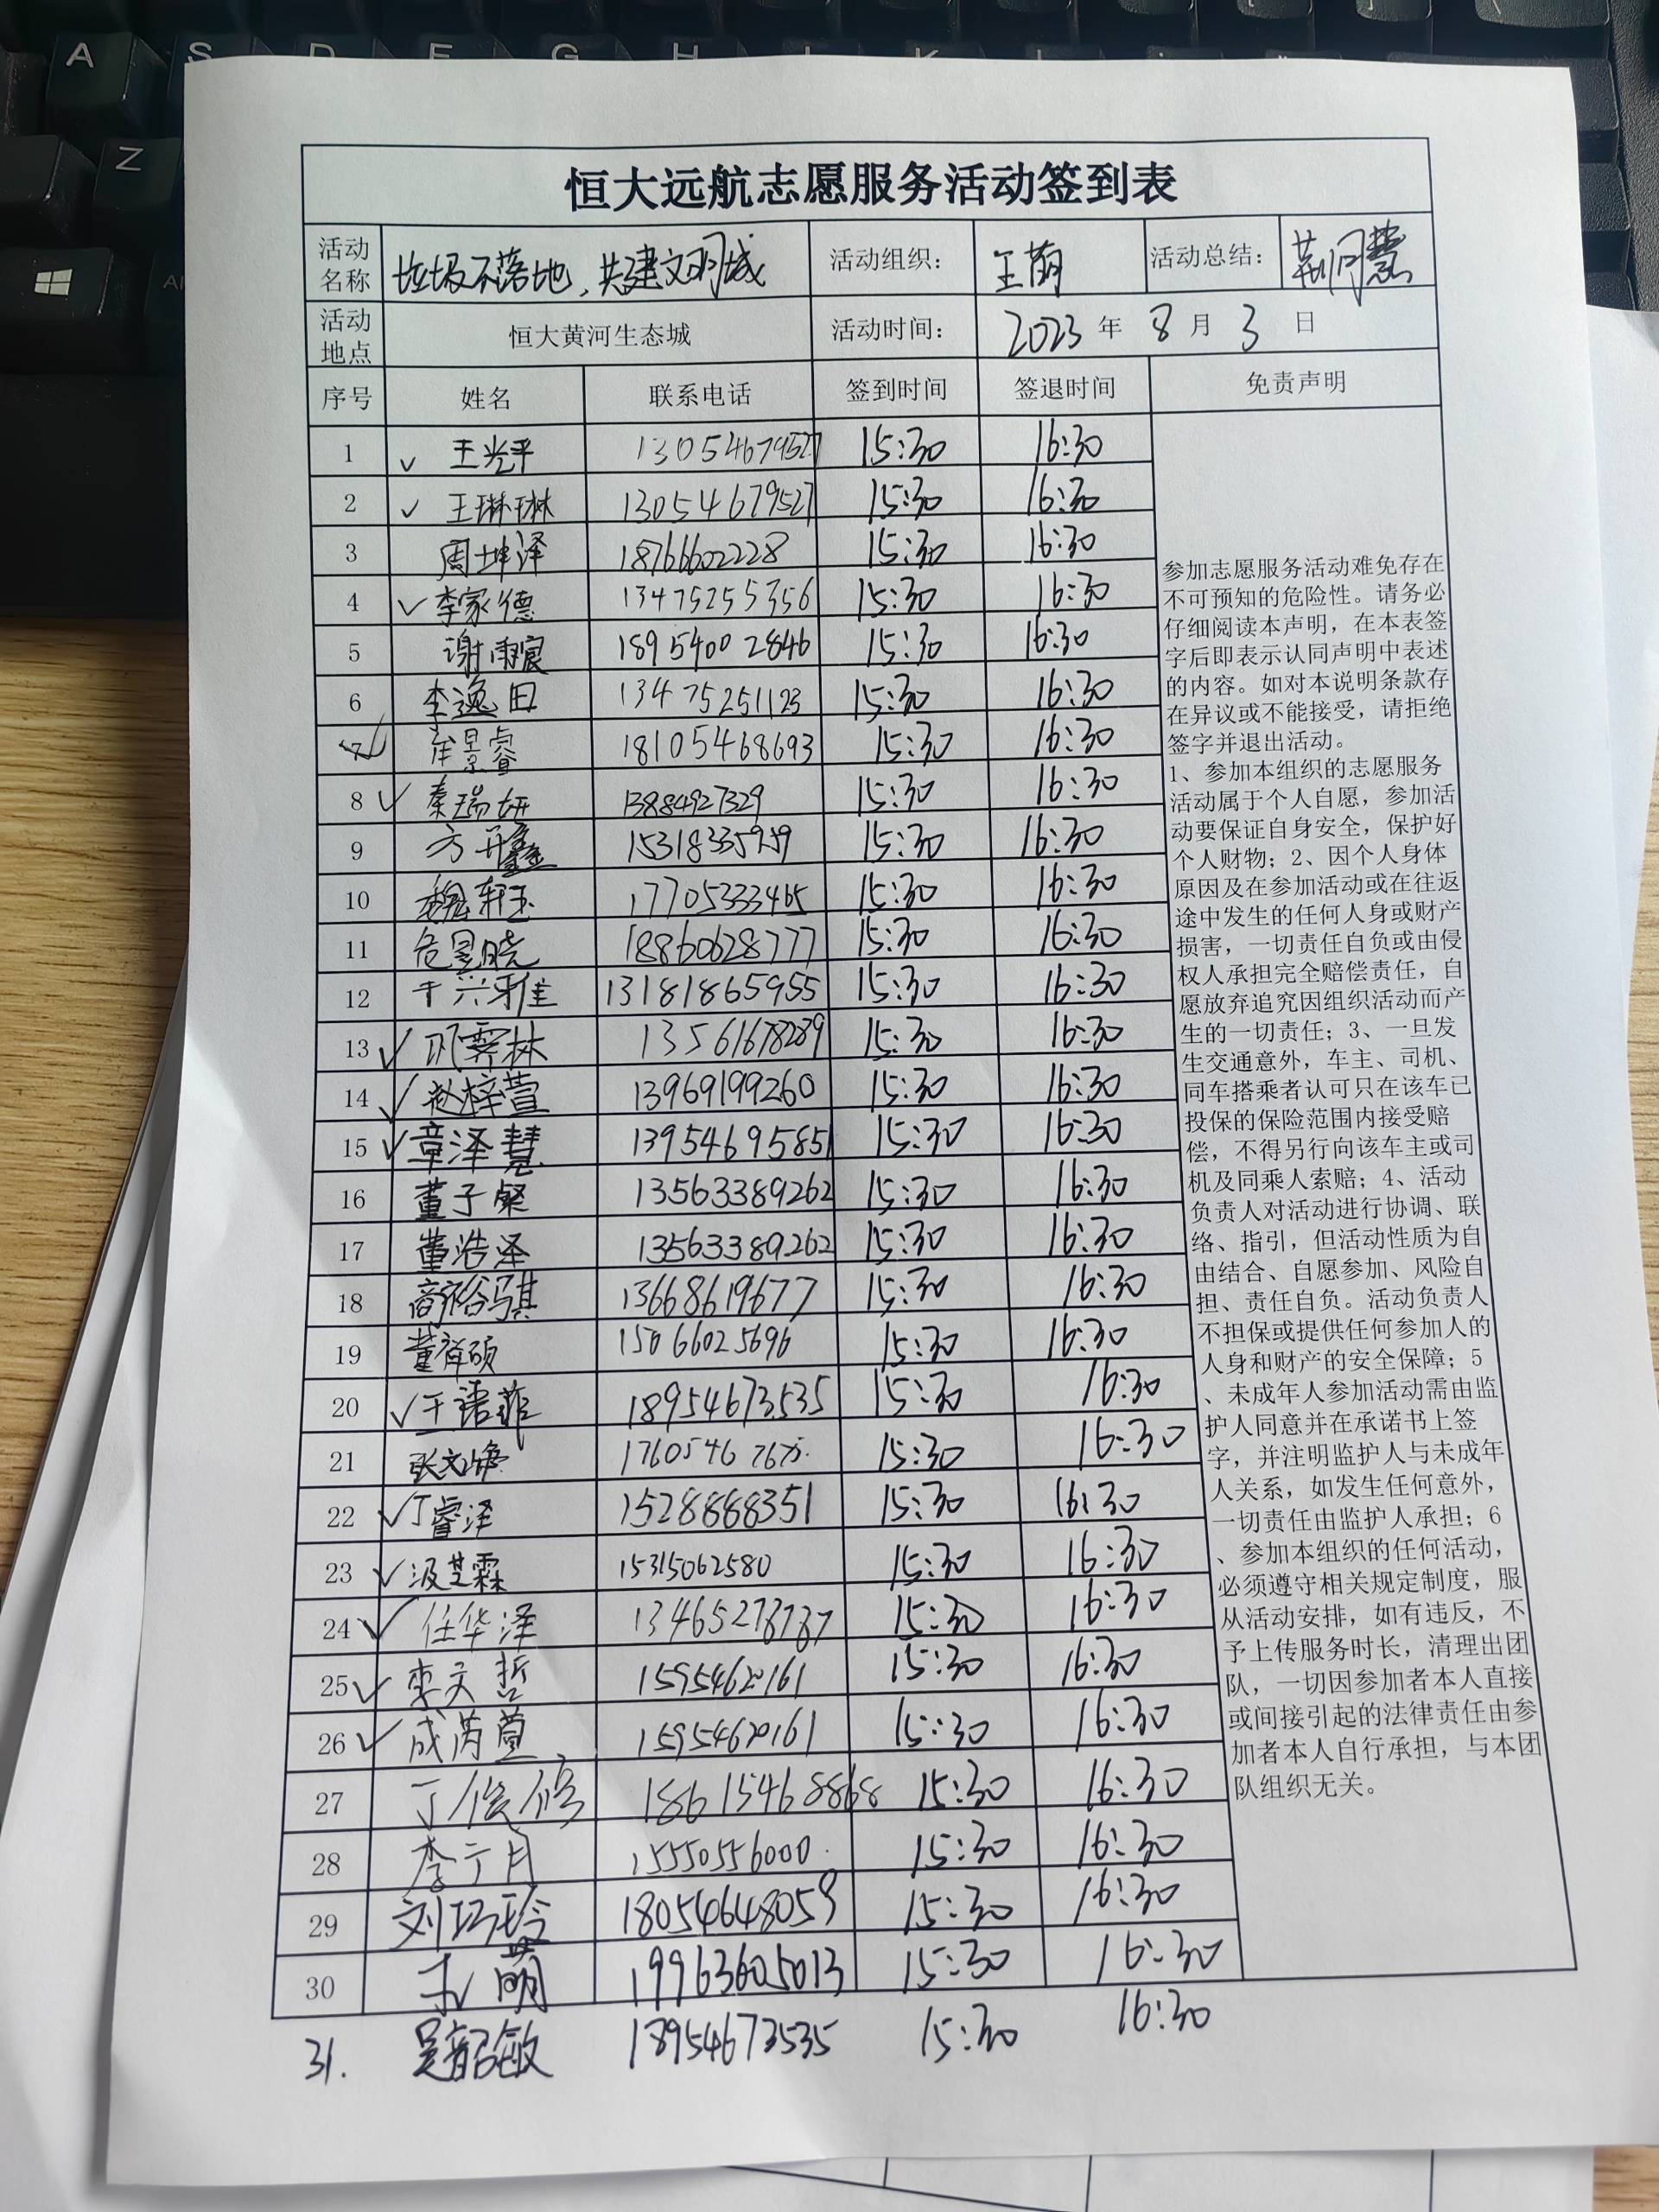 A S D F G H J K L
Z
恒大远航志愿服务活动签到表
活动名称 垃圾不落地,共建文明城 活动组织: 王萌 活动总结: 荆同慧
活动地点 恒大黄河生态城 活动时间: 2023 年 8 月 3 日
序号 姓名 联系电话 签到时间 签退时间 免责声明
1 ✓ 王光平 13054679527 15:30 16:30
2 ✓ 王琳琳 13054679527 15:30 16:30
3 周坤泽 18766602228 15:30 16:30
4 ✓ 李家德 13475255356 15:30 16:30
5 谢雨宸 18954002846 15:30 16:30
6 李逸田 13475251123 15:30 16:30
7 ✓ 景睿 18105468693 15:30 16:30
8 ✓ 秦瑞妍 13884927329 15:30 16:30
9 方开鑫 15:30 16:30
10 魏轩玉 17705333465 15:30 16:30
11 危昱晓 18860628777 15:30 16:30
12 于兴雅 13181865955 15:30 16:30
13 ✓ 巩霁林 13561678289 15:30 16:30
14 ✓ 赵梓萱 13969199260 15:30 16:30
15 ✓ 章泽慧 13954695851 15:30 16:30
16 董子粲 13563389262 15:30 16:30
17 董浩泽 13563389262 15:30 16:30
18 商裕骐 13668619677 15:30 16:30
19 董祥硕 15066025696 15:30 16:30
20 ✓ 王语菲 18954673535 15:30 16:30
21 张文峥 15:30 16:30
22 ✓ 丁睿泽 1528888351 15:30 16:30
23 ✓ 汲芷霖 15315062580 15:30 16:30
24 ✓ 任华泽 13465278787 15:30 16:30
25 ✓ 李天哲 15954620161 15:30 16:30
26 ✓ 成芮萱 15954620161 15:30 16:30
27 丁俊 18615468868 15:30 16:30
28 李亍月 15550556000 15:30 16:30
29 刘巧玲 18054648059 15:30 16:30
30 王萌 19963605013 15:30 16:30
31. 吴韶敏 18954673535 15:30 16:30
参加志愿服务活动难免存在
不可预知的危险性。请务必
仔细阅读本声明,在本表签
字后即表示认同声明中表述
的内容。如对本说明条款存
在异议或不能接受,请拒绝
签字并退出活动。
1、参加本组织的志愿服务
活动属于个人自愿,参加活
动要保证自身安全,保护好
个人财物;2、因个人身体
原因及在参加活动或在往返
途中发生的任何人身或财产
损害,一切责任自负或由侵
权人承担完全赔偿责任,自
愿放弃追究因组织活动而产
生的一切责任;3、一旦发
生交通意外,车主、司机、
同车搭乘者认可只在该车已
投保的保险范围内接受赔
偿,不得另行向该车主或司
机及同乘人索赔;4、活动
负责人对活动进行协调、联
络、指引,但活动性质为自
由结合、自愿参加、风险自
担、责任自负。活动负责人
不担保或提供任何参加人的
人身和财产的安全保障;5
、未成年人参加活动需由监
护人同意并在承诺书上签
字,并注明监护人与未成年
人关系,如发生任何意外,
一切责任由监护人承担;6
、参加本组织的任何活动,
必须遵守相关规定制度,服
从活动安排,如有违反,不
予上传服务时长,清理出团
队,一切因参加者本人直接
或间接引起的法律责任由参
加者本人自行承担,与本团
队组织无关。